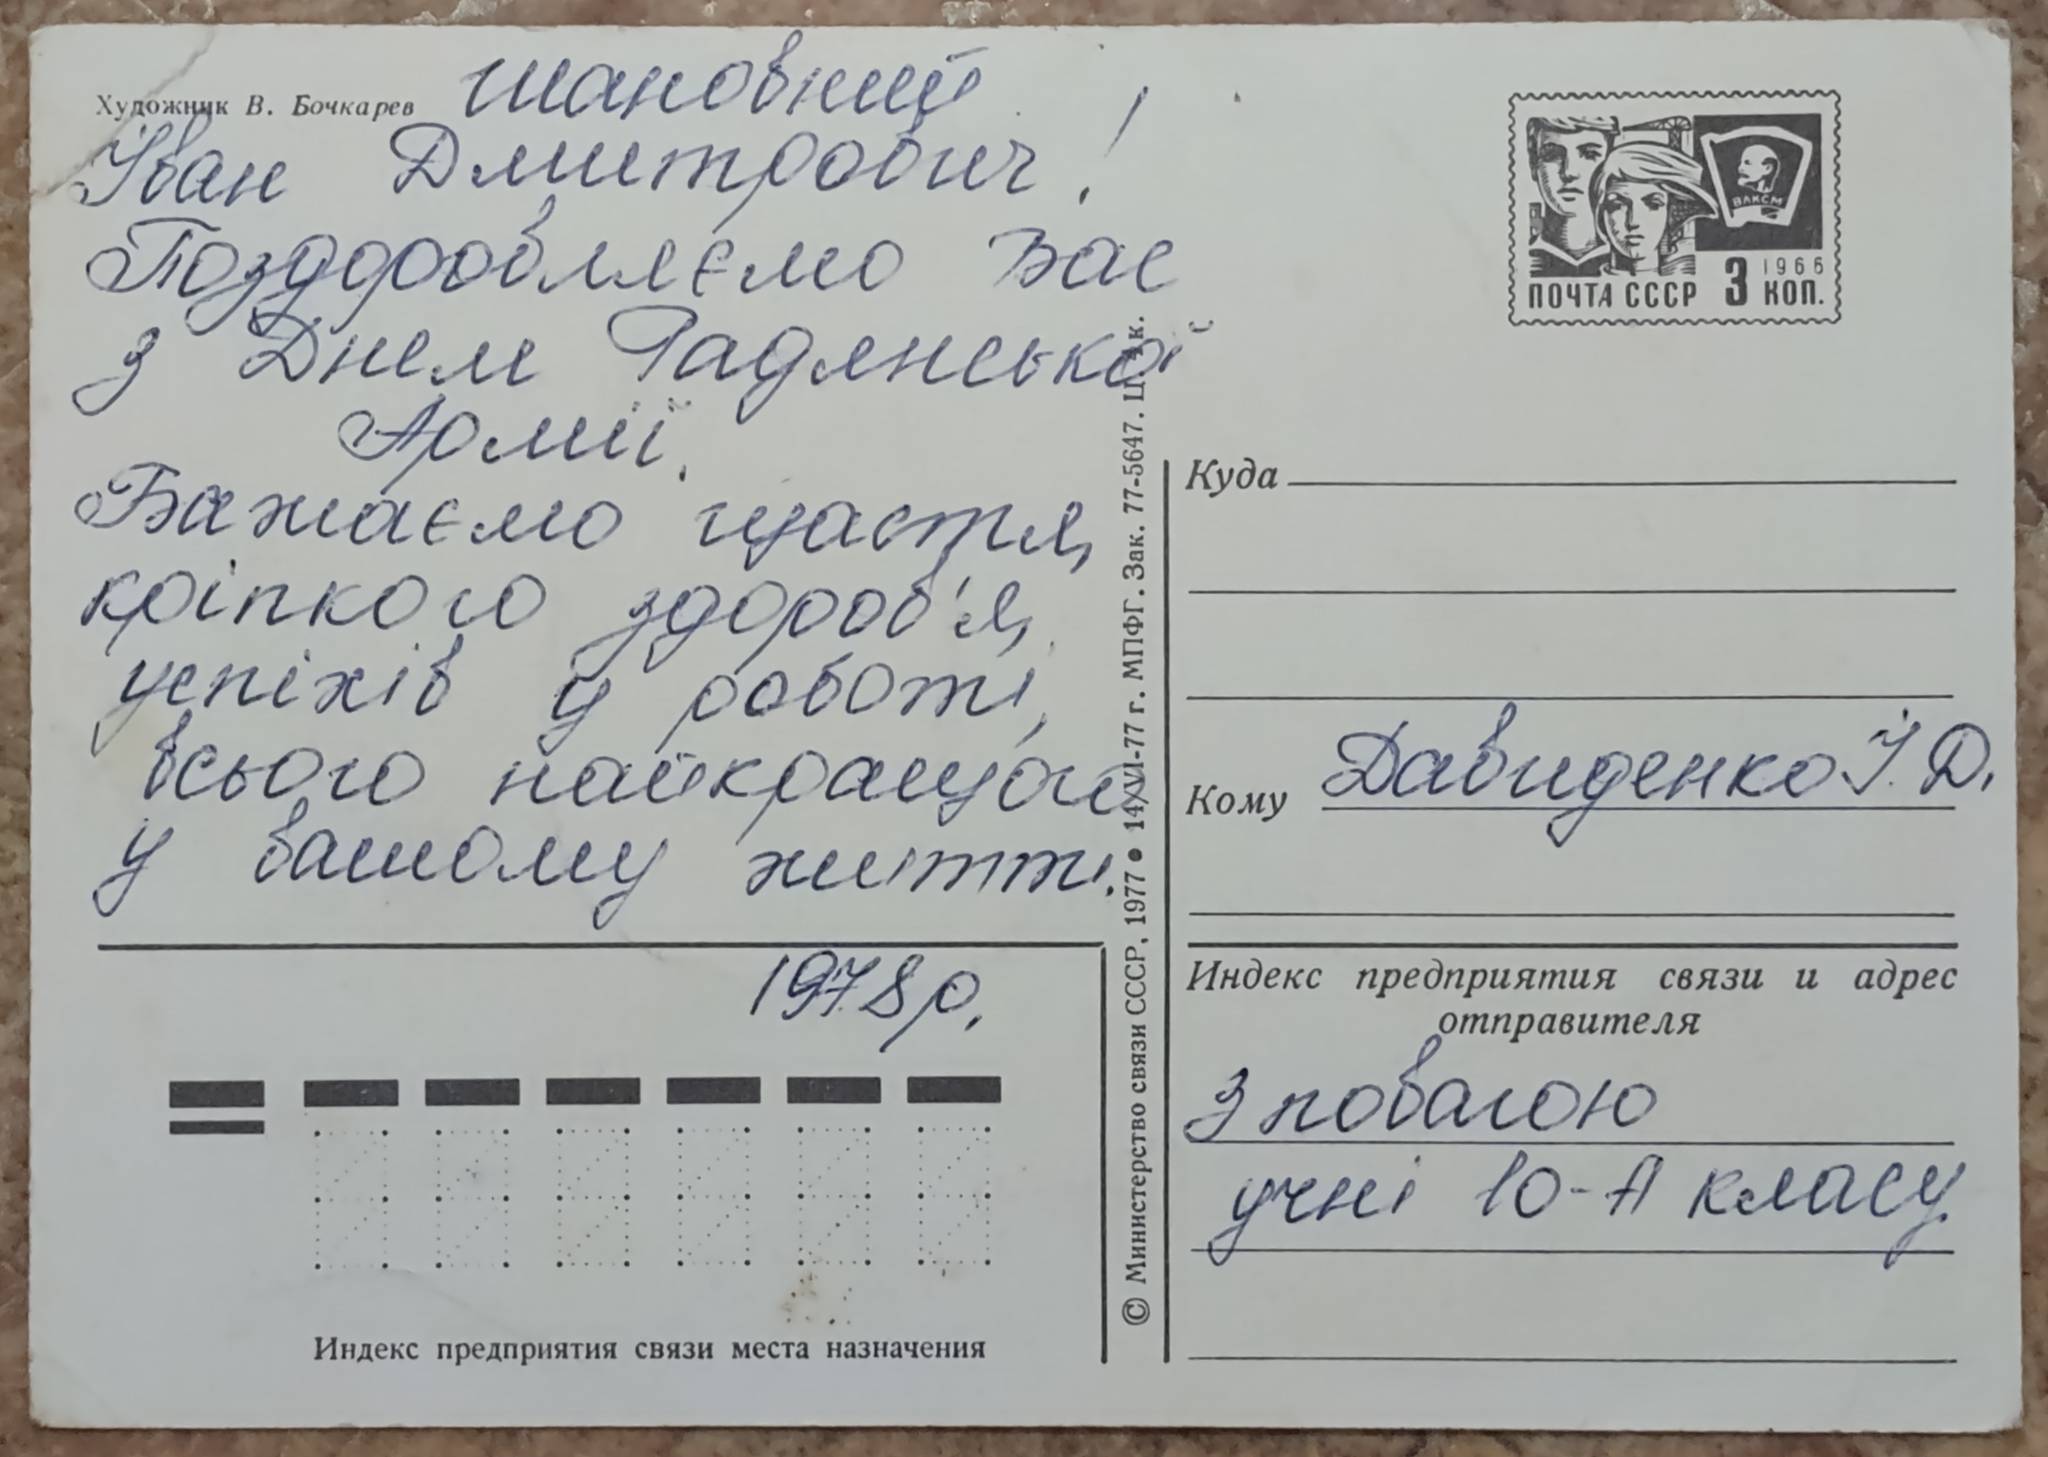 Художник В. Бочкарев
Шановний
Іван Дмитрович!
Поздоровляємо Вас
з Днем Радянської
Армії.
Бажаємо щастя,
кріпкого здоров'я,
успіхів у роботі,
всього найкращого
у вашому житті.
1978 р.
Индекс предприятия связи места назначения
© Министерство связи СССР, 1977 • 14/VI-77 г. МПФГ. Зак. 77-5647. Ц. 4 к.
ВЛКСМ
1966
ПОЧТА СССР 3 КОП.
Куда
Кому Давиденко І. Д.
Индекс предприятия связи и адрес
отправителя
З повагою
учні 10-А класу